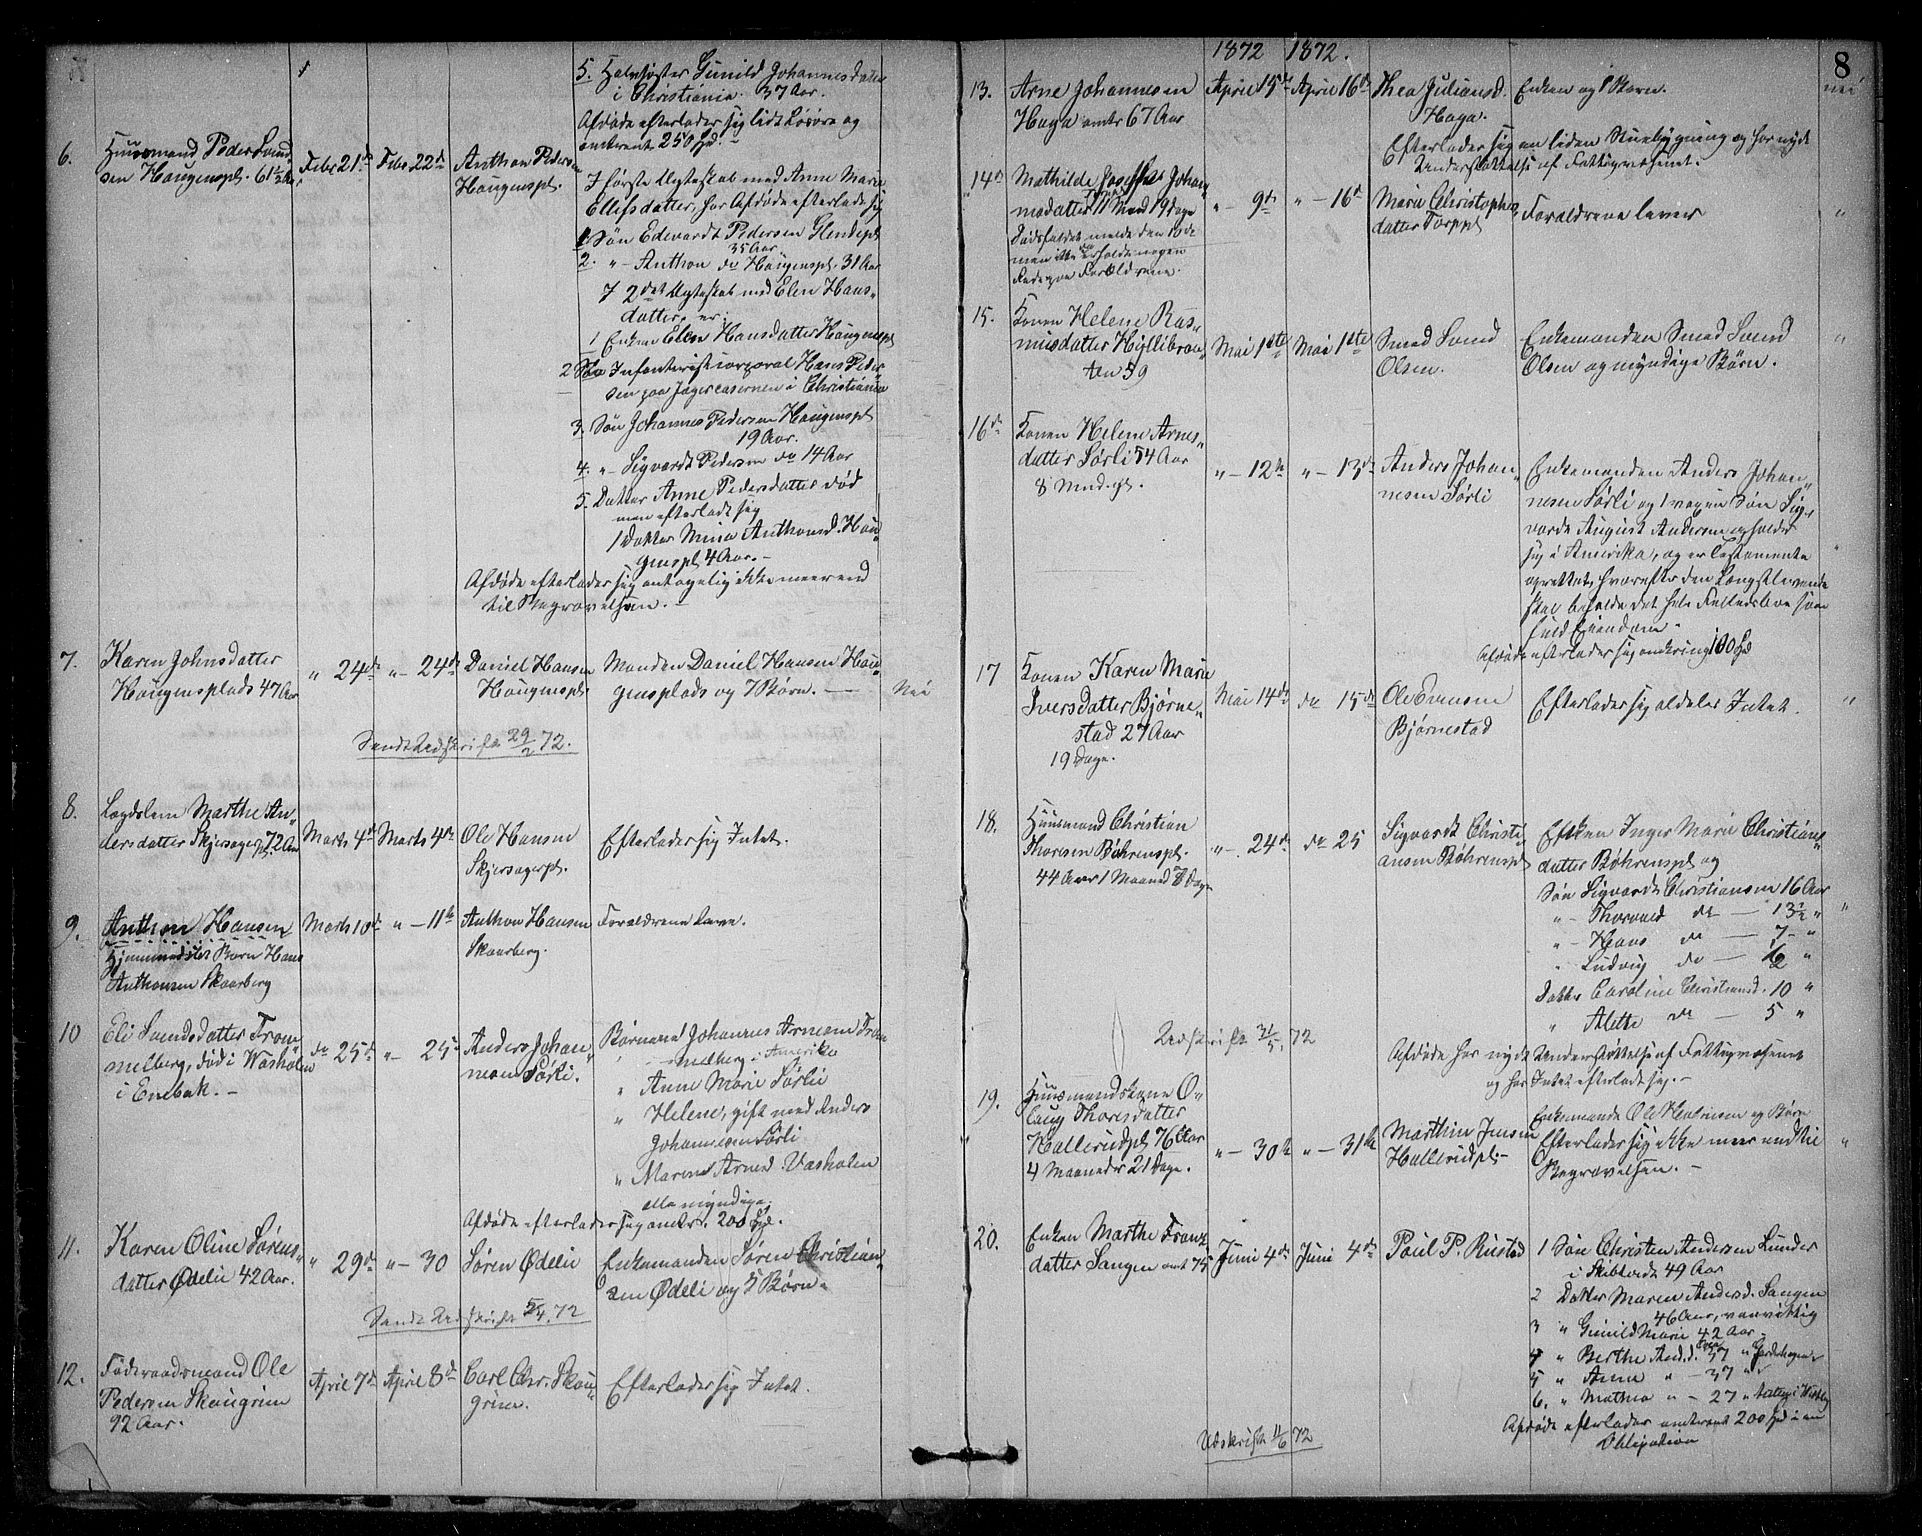 5. Halvsøster Gunild Johannesdatter
i Christiania. 37 Aar.
Afdøde efterlader sig lidt Løsøre og
omtrent 250 Spd. –
6.
Huusmand Peder Svend-
sen Haugenspl. 61½ Aar
Febr 21de
Febr 22de
Anthon Pedersen
Haugenspl.
I første Ægteskab med Anne Marie
Ellefsdatter, har Afdøde efterladt sig
1. Søn Edevardt Pedersen Glendepl
35 Aar
2. " – Anthon do Haugenspl. 31 Aar
I 2det Ægteskab med Elen Hans-
datter, er:
1 Enken Elen Hansdatter Haugenspl
2 Søn Infanteristcorporal Hans Peder-
sen paa Jægercasernen i Christiania
3. Søn Johannes Pedersen Haugenspl
19 Aar.
4. " – Sigvardt Pedersen do 14 Aar
5. Datter Anne Pedersdatter død
men efterladt sig
1 Datter Mina Anthonsd. Hau-
genspl 4 Aar. –
Afdøde efterlader sig antagelig ikke meer end
til Begravelsen. –
7.
Karen Johnsdatter
Haugensplads 47 Aar
" 24de
" – 24de
Daniel Hansen
Haugenspl.
Manden Daniel Hansen Hau-
gensplads og 7 Børn. –
Nei
Sendt Udskrift 29/2 72.
8.
Lægdslem Marthe An-
dersdatter Skjersagerpl. 72 Aar
Marts 4de
Marts 4de
Ole Hansen
Skjersagerpl.
Efterlader sig Intet.
9.
Anthon Hansen
Hjemmedøbt Barn Hans
Anthonsen Skaarberg
Marts 10de
" – 11te
Anthon Hansen
Skaarberg.
Forældrene leve.
10
Eli Svendsdatter Trom-
melberg, død i Vasholen
i Enebak. –
do 25de
" – 25
Anders Johan-
nesen Sørli.
Børnene Johannes Arnesen Trom-
melberg i Amerika
" Anne Marie Sørlie
" Helene, gift med Anders
Johannesen Sørli
" Maren Arnesd. Vasholen
alle myndige.
Afdøde efterlader sig omtr. 200 Spd.
11.
Karen Oline Sørens-
datter Ødelie 42 Aar.
" 29de
" – 30
Søren Ødelie
Enkemanden Søren Christian-
sen Ødeli og 5 Børn.
Sendt Udskrift 5/4 72
12.
Føderaadsmand Ole
Pedersen Skaugrim
92 Aar.
April 7de
April 8de
Carl Chr. Skau-
grim.
Efterlader sig Intet.
8
1872 1872.
nei
13.
Arne Johannesen
Haga omtr 67 Aar
April 15de
April 16de
Thea Juliansd.
Haga.
Enken og 1 Barn.
Efterlader sig en liden Stuebygning og har nydt
Understøttelse af Fattigvæsenet.
14de
Mathilde Josefine Johan-
nesdatter 11 Mnd 19 Dage
Dødsfaldet meldt den 10de
men ikke da erholdt nogen
Rede paa Forældrene.
" – 9de
" – 16de
Marie Christophers-
datter Torppl
Forældrene lever
"
15.
Konen Helene Ras-
musdatter Hyllibraa-
ten 59
Mai 1ste
Mai 1ste
Smed Svend
Olsen.
Enkemanden Smed Svend
Olsen og myndige Børn.
"
16de
Konen Helene Arnes-
datter Sørli 54 Aar
8 Mnd. gl.
" – 12te
" – 13de
Anders Johan-
nesen Sørli
Enkemanden Anders Johan-
nesen Sørli og 1 voxen Søn Sig-
vardt August Andersen opholder
sig i Amerika, og er Testamente
oprettet, hvorefter den Længstlevende
skal beholde det hele Fælledsbo som
fuld Eiendom.
Afdøde efterlader sig omkring 100 Spd
"
17
Konen Karen Marie
Iversdatter Bjørne-
stad 27 Aar
19 Dage.
Mai 14de
do 15de
Ole Evensen
Bjørnestad
Efterlader sig aldeles Intet.
"
18.
Huusmand Christian
Thoresen Bøhrenspl.
44 Aar 1 Maaned 8 Dage
" – 24de
do 25
Sigvardt Christi-
ansen Bøhrenspl
Enken Inger Marie Christians-
datter Bøhrenspl og
Søn Sigvardt Christiansen 16 Aar
" – Thorvald do – 13½ "
" – Hans do – 7 – "
" Ludvig do – "
Datter Caroline Christiansd. 10 "
" Alette do – 5 "
"
Udskrift 31/5 72
Afdøde har nydt Understøttelse af Fattigvæsenet
og har Intet efterladt sig. –
19.
Huusmandskone O-
laug Thoresdatter
Hallerudpl 76 Aar
4 Maaneder 21 Dage.
" – 30te
" – 31te
Marthin Jensen
Hallerudpl –
Enkemand Ole Halvorsen og Børn
Efterlader sig ikke meer end til
Begravelsen. –
"
20.
Enken Marthe Franz-
datter Sangen omt 75
Juni 4de
Juni 4de
Paul P. Rustad
1 Søn Christen Andersen Lunder
i Skibtvedt 49 Aar
2 Datter Maren Andersd. Sangen
46 Aar, vanvittig
3 " Gunild Marie 42 Aar
4 " Berthe And.d. 37 "
5 " Anne " – 37 "
6. " Mathea " – 27 "
Afdøde efterlader omtrent 200 Spd i en
Obligation
Udskrift 11/6 72